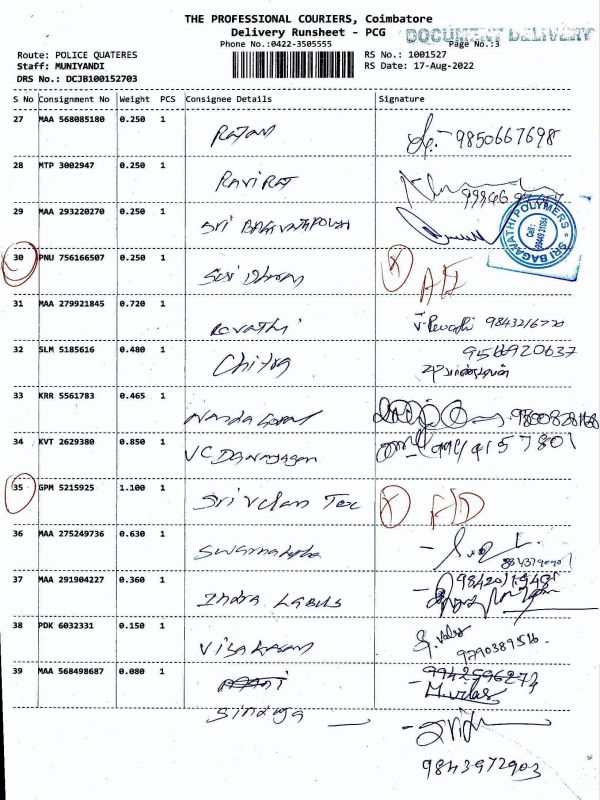 THE PROFESSIONAL COURIERS, Coimbatore
Delivery Runsheet - PCG
DOCUMENT DELIVERY
Phone No.:0422-3505555
Page No.:3
Route: POLICE QUATERES
RS No.: 1001527
Staff: MUNIYANDI
RS Date: 17-Aug-2022
DRS No.: DCJB100152703
S No Consignment No Weight PCS Consignee Details Signature
27 MAA 568085180 0.250 1 Rajan 9850667698
28 MTP 3002947 0.250 1 Ravi Raj
29 MAA 293220270 0.250 1 Sri
SRI BAGAVATHI POLYMERS
Cell:
30 PNU 756166507 0.250 1 X
31 MAA 279921845 0.720 1 Revathi
32 SLM 5185616 0.480 1 Chitra 9566920637
33 KRR 5561783 0.465 1 Nanda Gopal
34 KVT 2629380 0.850 1 VC 9994157801
35 GPM 5215925 1.100 1 Sri Velan Tex X
36 MAA 275249736 0.630 1
37 MAA 291904227 0.360 1 Indra Labus
38 PDK 6032331 0.150 1 9790389516
39 MAA 568498687 0.080 1 9942596273
Murdas
Sinduja
9843972903